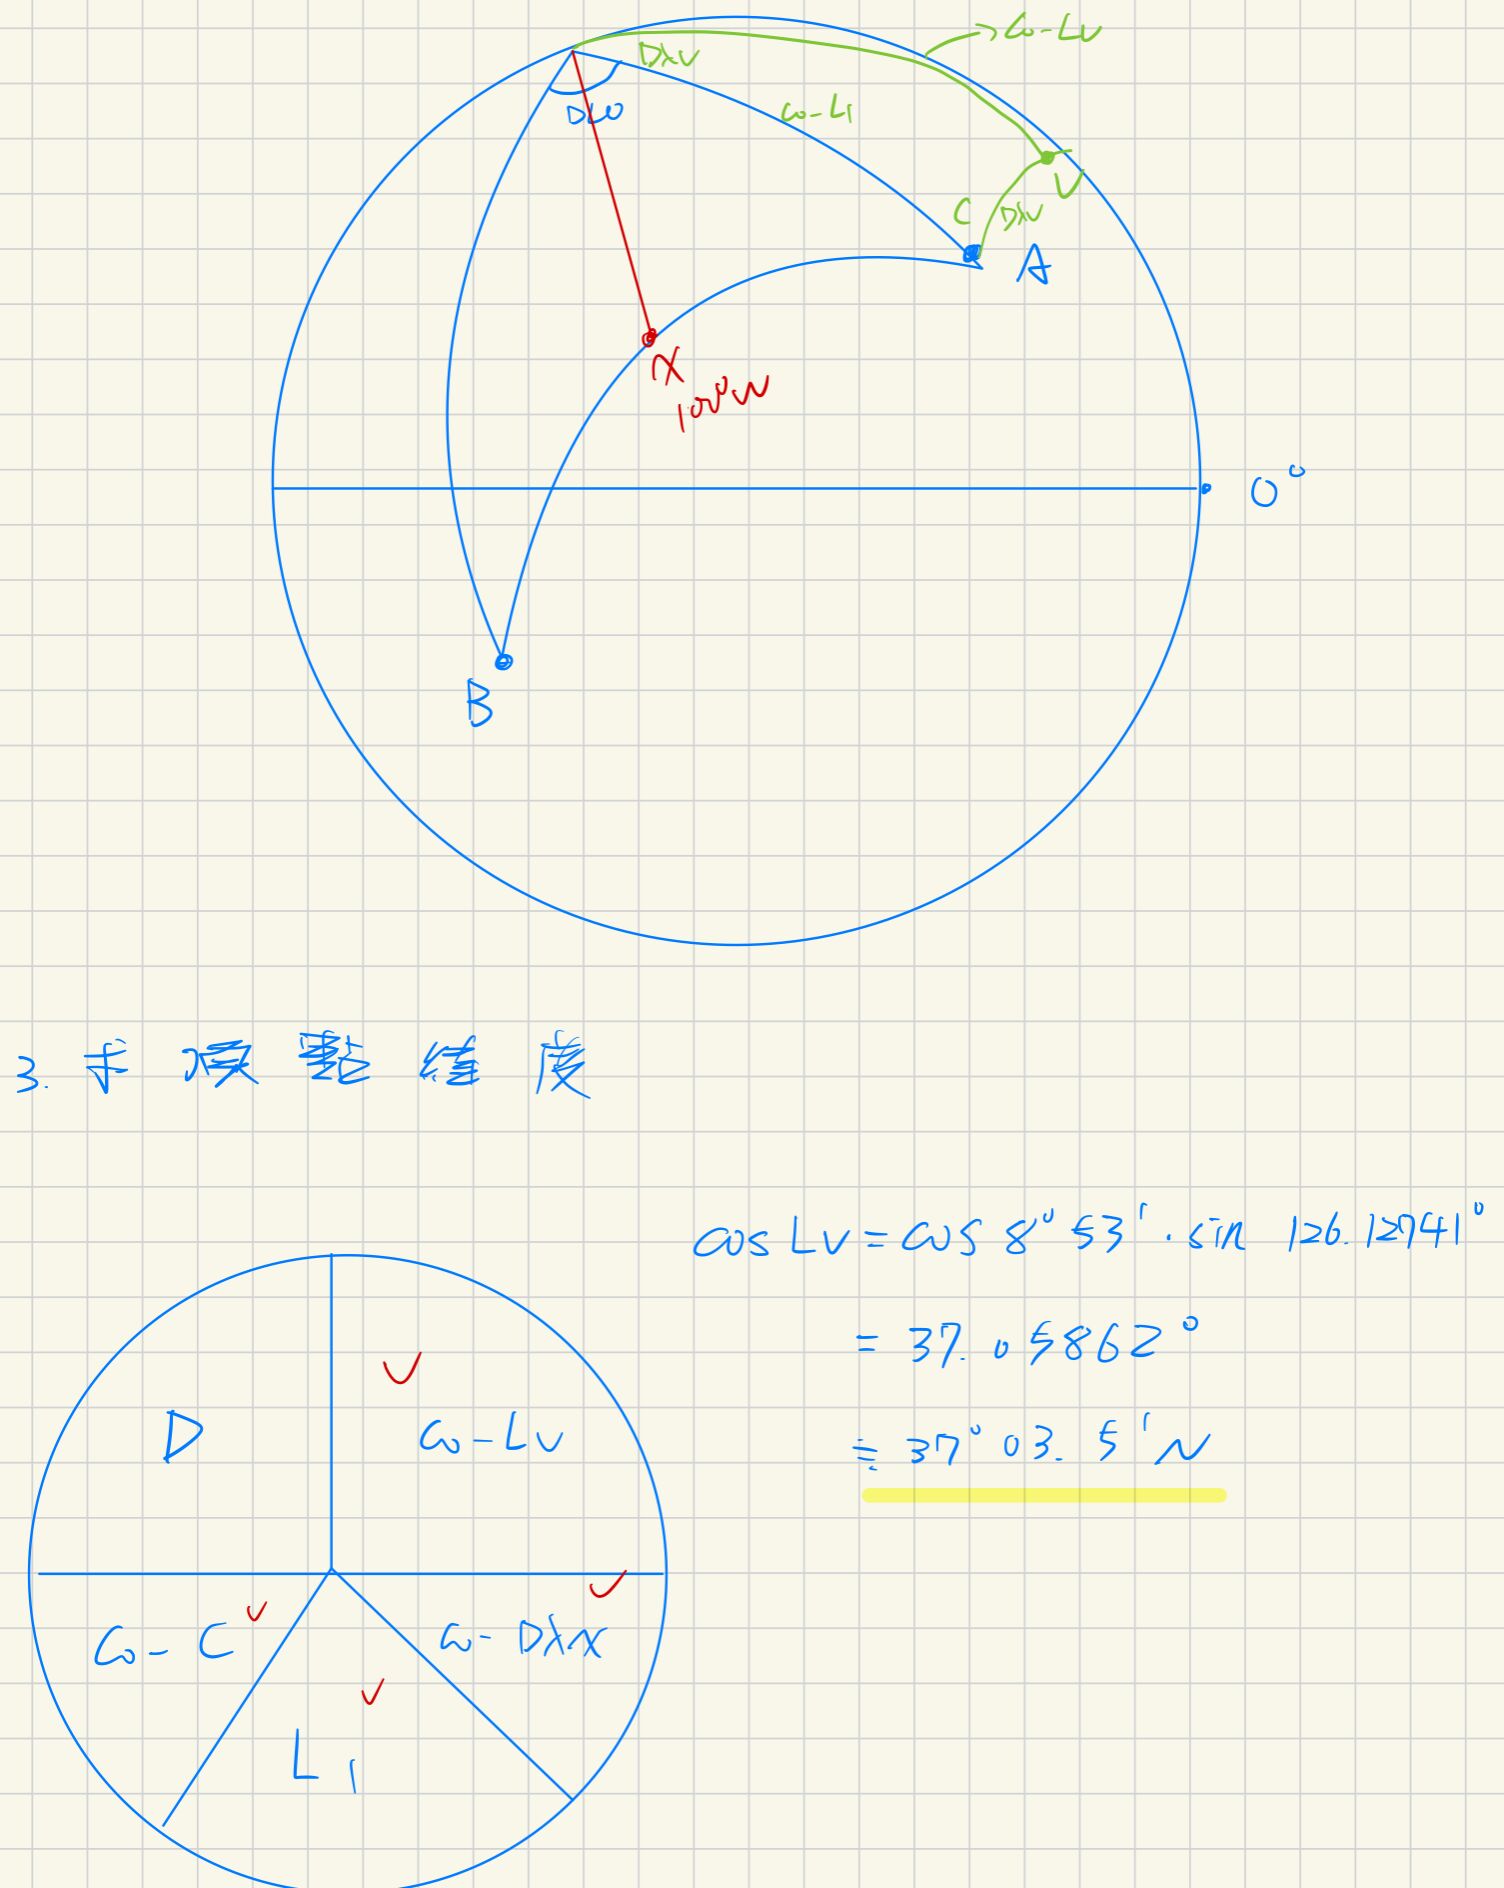 Co-Lv
Dλv
DLo
Co-L1
V
C
Dλv
A
X
100°W
0°
B
3. 求頂點緯度
cos Lv = cos 8°53' · sin 126.12741°
= 37.05862°
≒ 37°03.5'N
D
Co-Lv
Co-C
Co-Dλx
L1